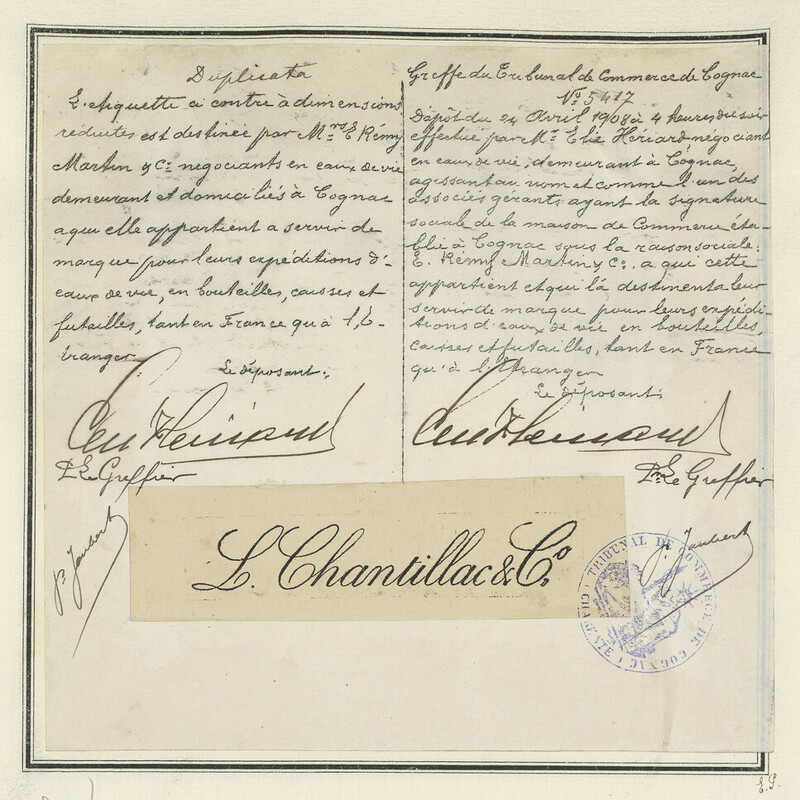 Duplicata
L'etiquette ci contre à dimensions
réduites est destinée par Mrs E. Rémy
Martin & Co négociants en eaux de vie
demeurant et domiciliés à Cognac
a qui elle appartient a servir de
marque pour leurs expéditions d'-
eaux de vie, en bouteilles, caisses et
futailles, tant en France qu'à l'É-
tranger.
Le déposant:
Pr Le Greffier
Pr Jaubert
Greffe du Tribunal de Commerce de Cognac
No 5417
Dépôt du 24 Avril 1908 à 4 heures du soir
effectué par Mr Elie Hériard négociant
en eaux de vie, demeurant à Cognac,
agissant au nom et comme l'un des
associés gérants ayant la signature
sociale de la maison de Commerce éta-
blie à Cognac sous la raison sociale:
E. Rémy Martin & Co, a qui cette
appartient et qui la destinent a leur
servir de marque pour leurs expédi-
tions d'eaux de vie en bouteilles,
caisses et futailles, tant en France
qu'à l'Etranger
Le déposant:
Pr Le Greffier
Pr Jaubert
L. Chantillac & Co.
TRIBUNAL DE COMMERCE DE COGNAC
(CHARENTE)
E.P.